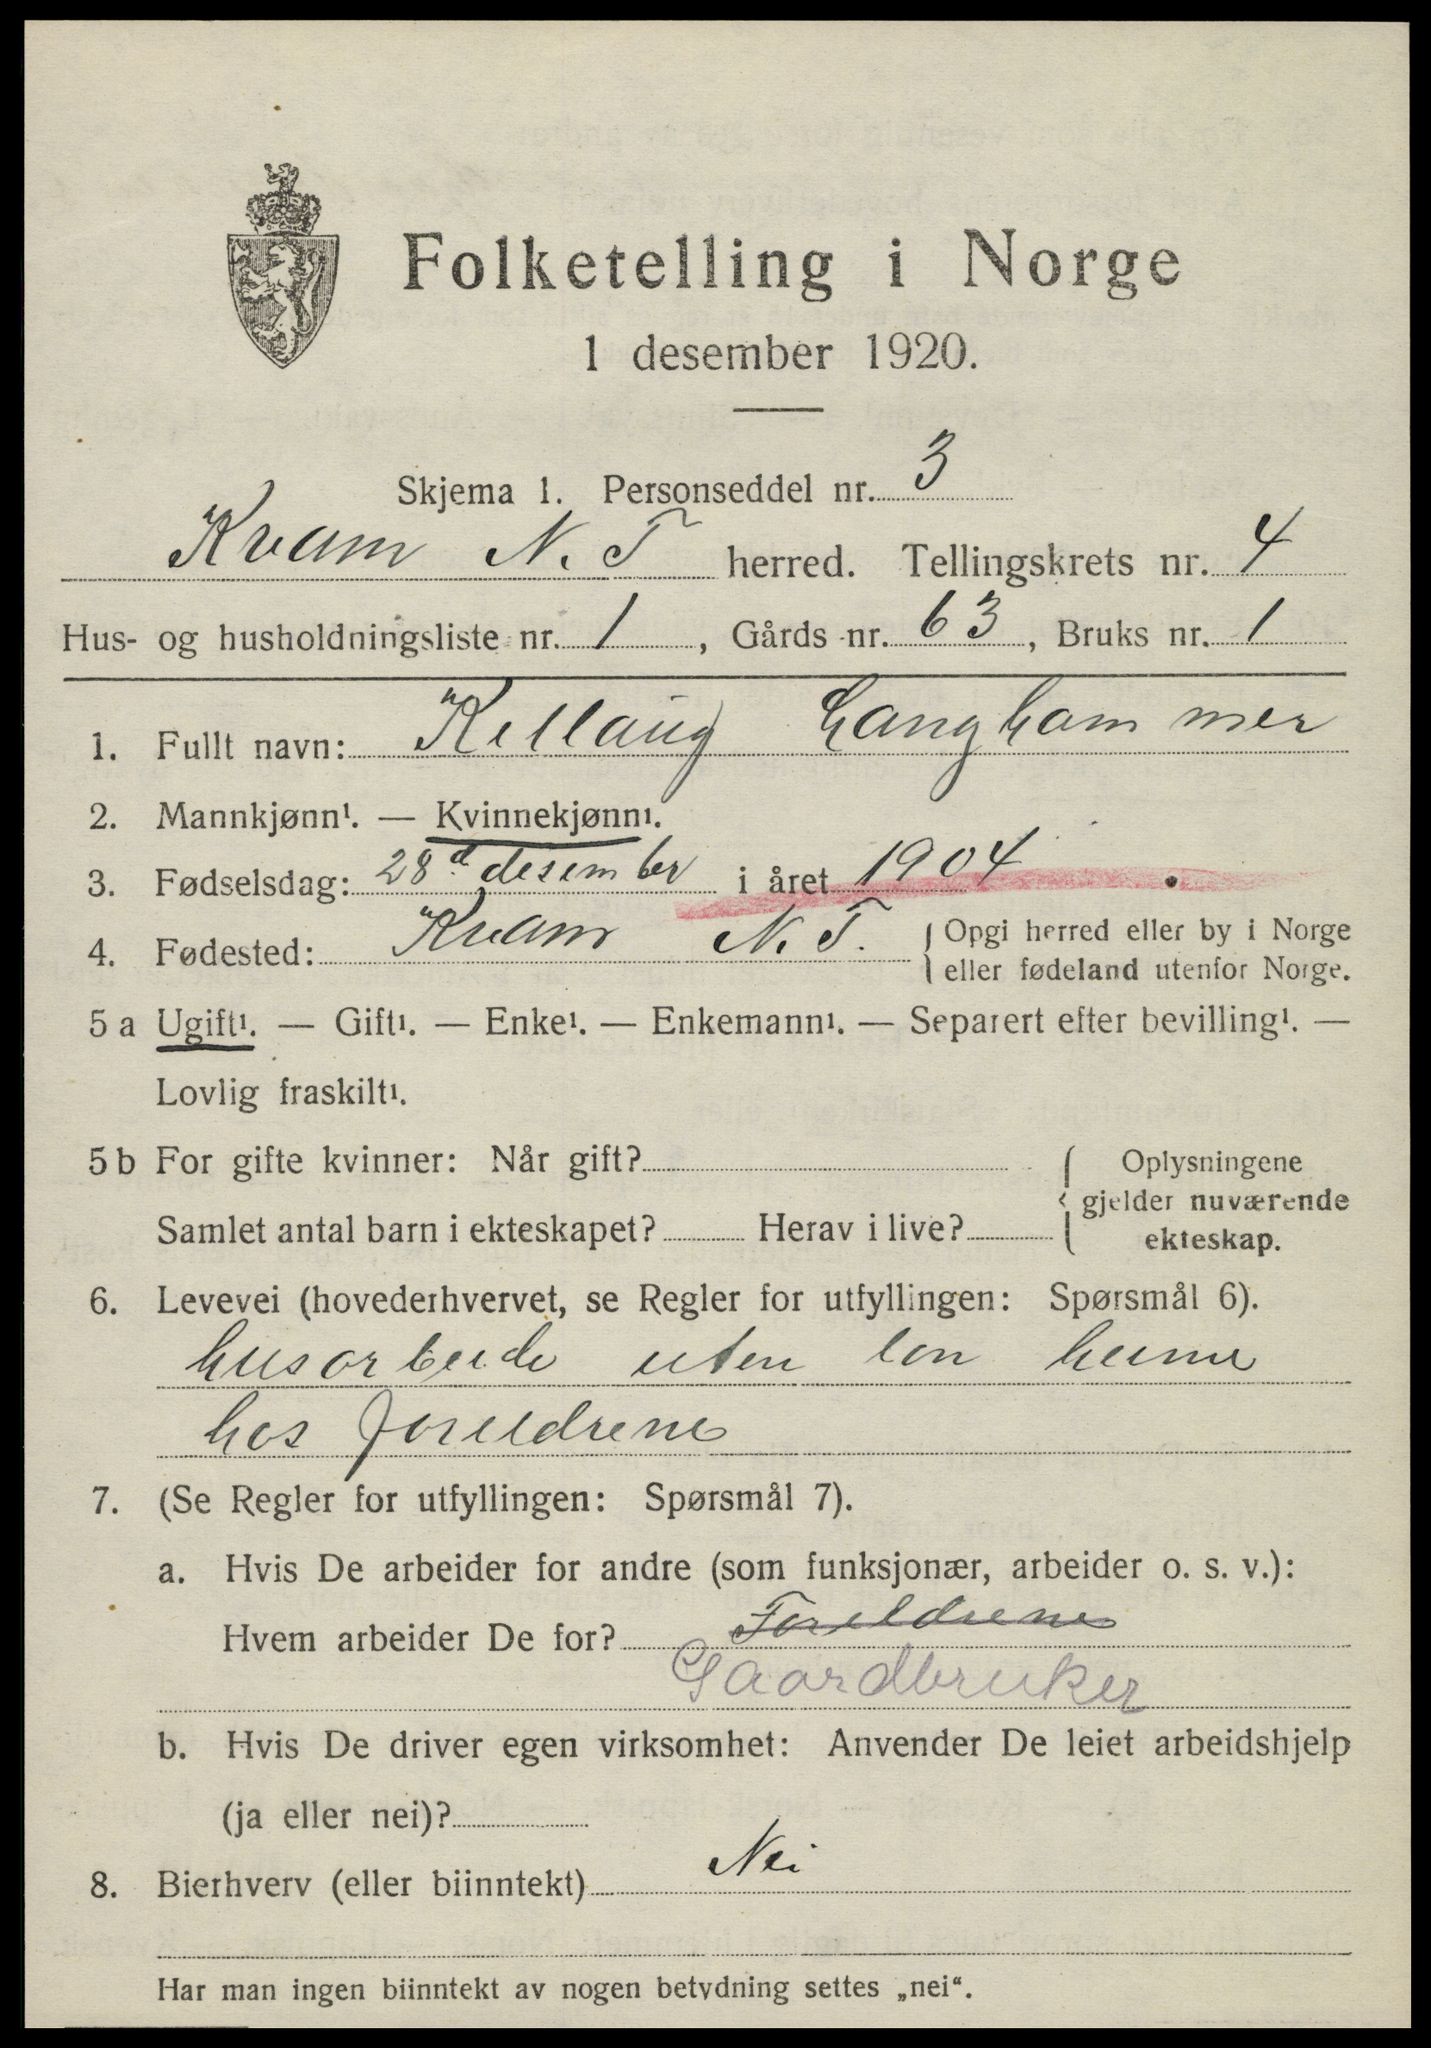 Folketelling i Norge
1 desember 1920.
Skjema 1. Personseddel nr. 3
Kvam N. T herred. Tellingskrets nr. 4
Hus- og husholdningsliste nr. 1, Gårds nr. 63, Bruks nr. 1
1. Fullt navn: Kellaug Langhammer
2. Mannkjønn¹. — Kvinnekjønn¹.
3. Fødselsdag: 28d. desember i året 1904
4. Fødested: Kvam N. T. { Opgi herred eller by i Norge
eller fødeland utenfor Norge.
5 a Ugift¹. — Gift¹. — Enke¹. — Enkemann¹. — Separert efter bevilling¹. —
Lovlig fraskilt¹.
5 b For gifte kvinner: Når gift? { Oplysningene
gjelder nuværende
Samlet antal barn i ekteskapet? Herav i live?
ekteskap.
6. Levevei (hovederhvervet, se Regler for utfyllingen: Spørsmål 6).
husarbeide uten løn heime
hos foreldrene
7. (Se Regler for utfyllingen: Spørsmål 7).
a. Hvis De arbeider for andre (som funksjonær, arbeider o. s. v.):
Hvem arbeider De for? Foreldrene
Gaardbruker
b. Hvis De driver egen virksomhet: Anvender De leiet arbeidshjelp
(ja eller nei)?
8. Bierhverv (eller biinntekt) Nei
Har man ingen biinntekt av nogen betydning settes „nei“.